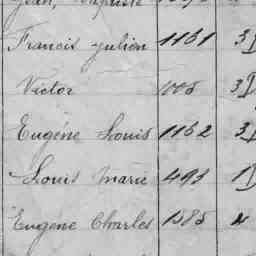 Jean, Baptiste
Francis Julien 1131 3
Victor 1005 3
Eugène Louis 1162 3
Louis Marie 493 1
Eugène Charles 1385